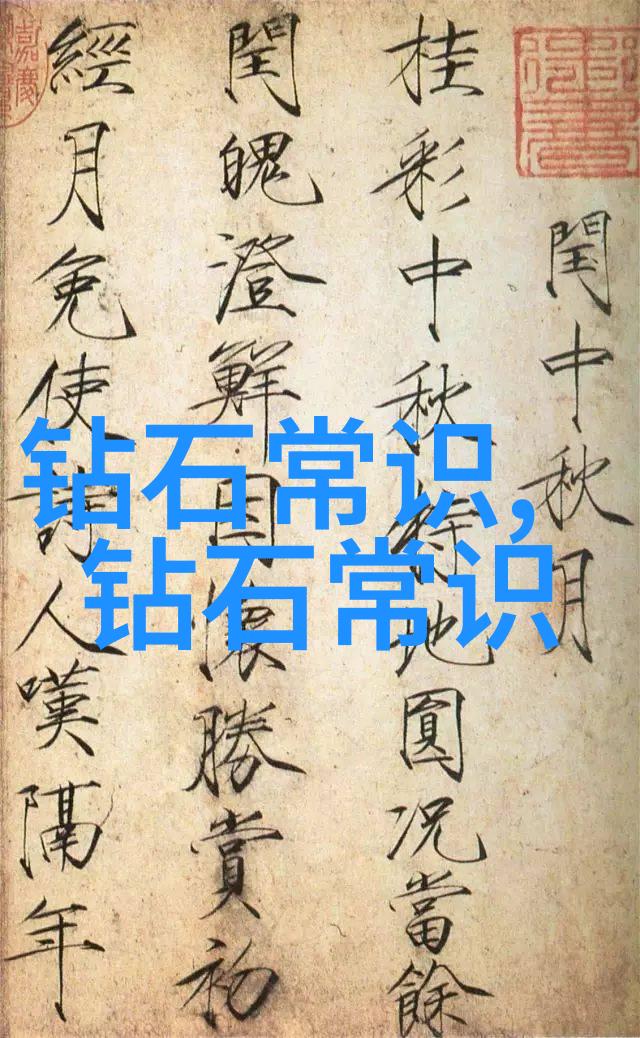 閏中秋月
桂彩中秋特地圓況當餘
閏魄澄鮮因懷勝賞初
經月免使詩人嘆隔年
钻石常识,
钻石常识